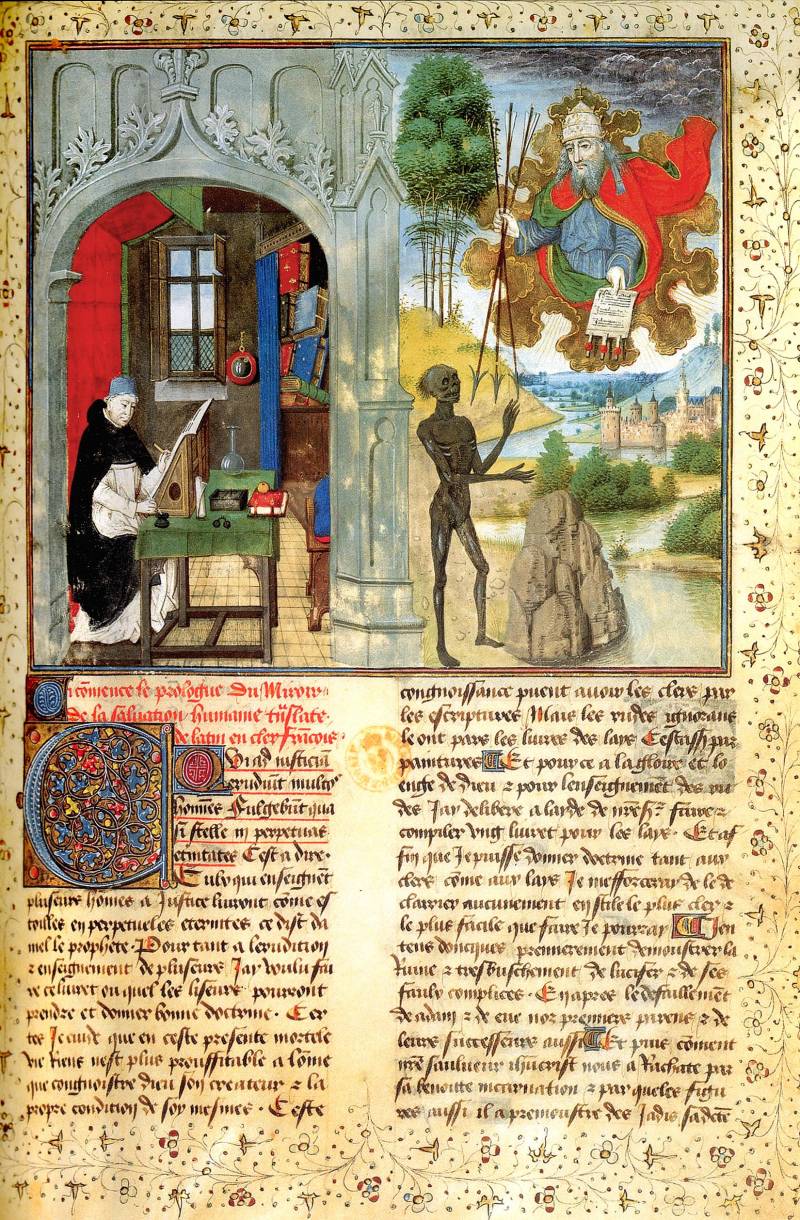 Ci cōmence le prologue du Miroir
de la saluation humaine trāslate
de latin en cler francois
Qui ad iusticiā
erudiunt multos
homīes Fulgebūt qua
si stelle in perpetuas
eternitates Cest a dire
Ceulx qui enseignēt
pluseurs hōmes a Justice luiront cōme es
toilles en perpetueles eternites ce dist da
niel le prophete Pour tant a lerudition
⁊ enseignement de pluseurs Jay voulu fai
re ce liuret ou quel les liseurs pourront
prendre et donner bonne doctrine Cer
tes Je cuide que en ceste presente mortele
vie riens nest plus prouffitable a lōme
que congnoistre dieu son createur ⁊ la
propre condition de soy mesmes Ceste
congnoissance pueent auoir les clers par
les escriptures Mais les rudes ignorans
le ont par les liures des lays Cestassr̄ par
paintures Et pour ce a la gloire et lo
enge de dieu ⁊ pour lenseignement des ru
des Jay delibere a layde de nr̄e sr̄ faire ⁊
compiler vng liuret pour les lays Et af
fin que Je puisse donner doctrine tant aux
clers cōme aux lays Je mefforceray de le de
clairier aucunement en stile le plus cler ⁊
le plus facile que faire Je pourray Jen
tens doncques premierement demonstrer la
Ruine ⁊ tresbuschement de lucifer ⁊ de ses
faulx complices En apres le defaillemēt
de adam ⁊ de eue noz premiers parens ⁊ de
leurs successeurs aussi Et puis cōment
nr̄e sauueur ihūcrist nous a Rachate par
sa benoitte incarnation ⁊ par queles figu
res aussi il a premonstre des Jadis sa dcē